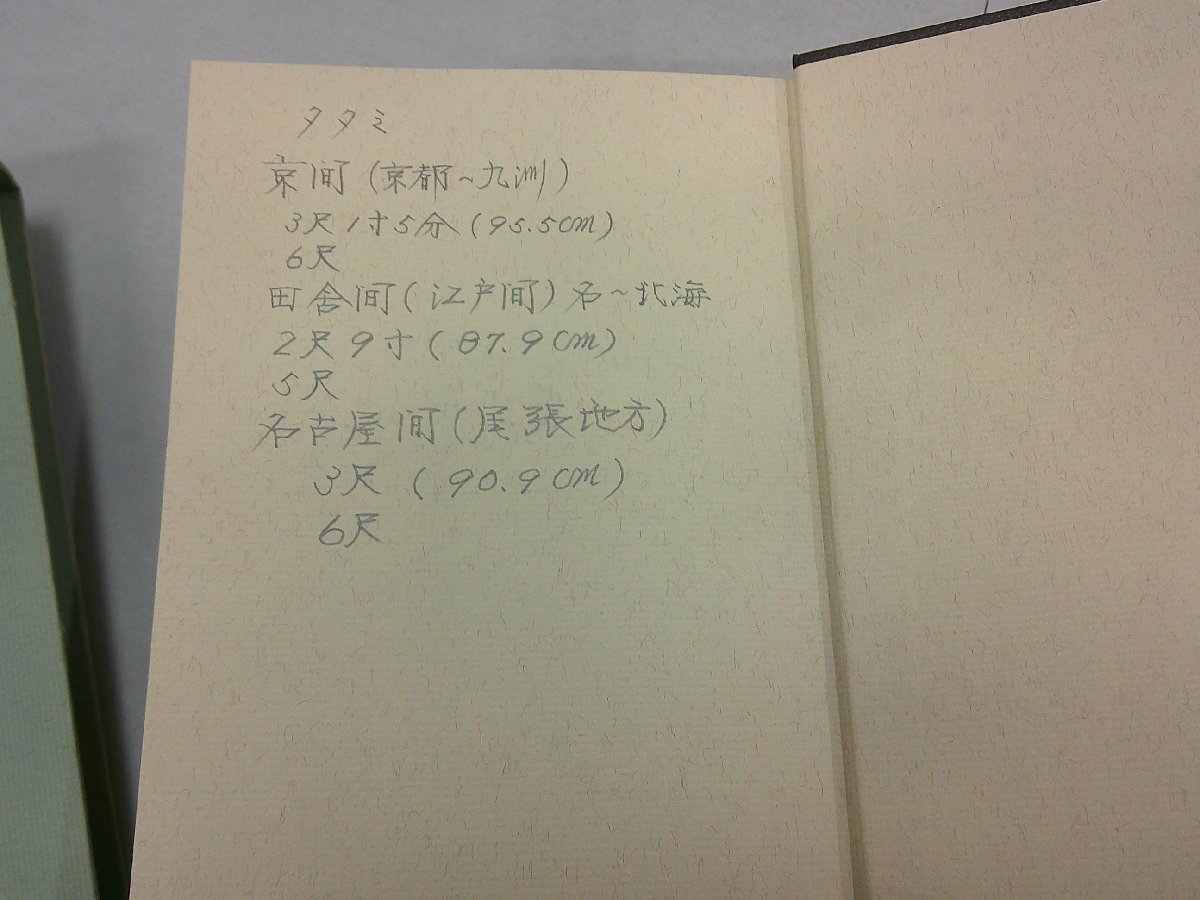 タタミ
京間(京都～九洲)
3尺1寸5分(95.5cm)
6尺
田舎間(江戸間)名～北海
2尺9寸(87.9cm)
5尺
名古屋間(尾張地方)
3尺(90.9cm)
6尺